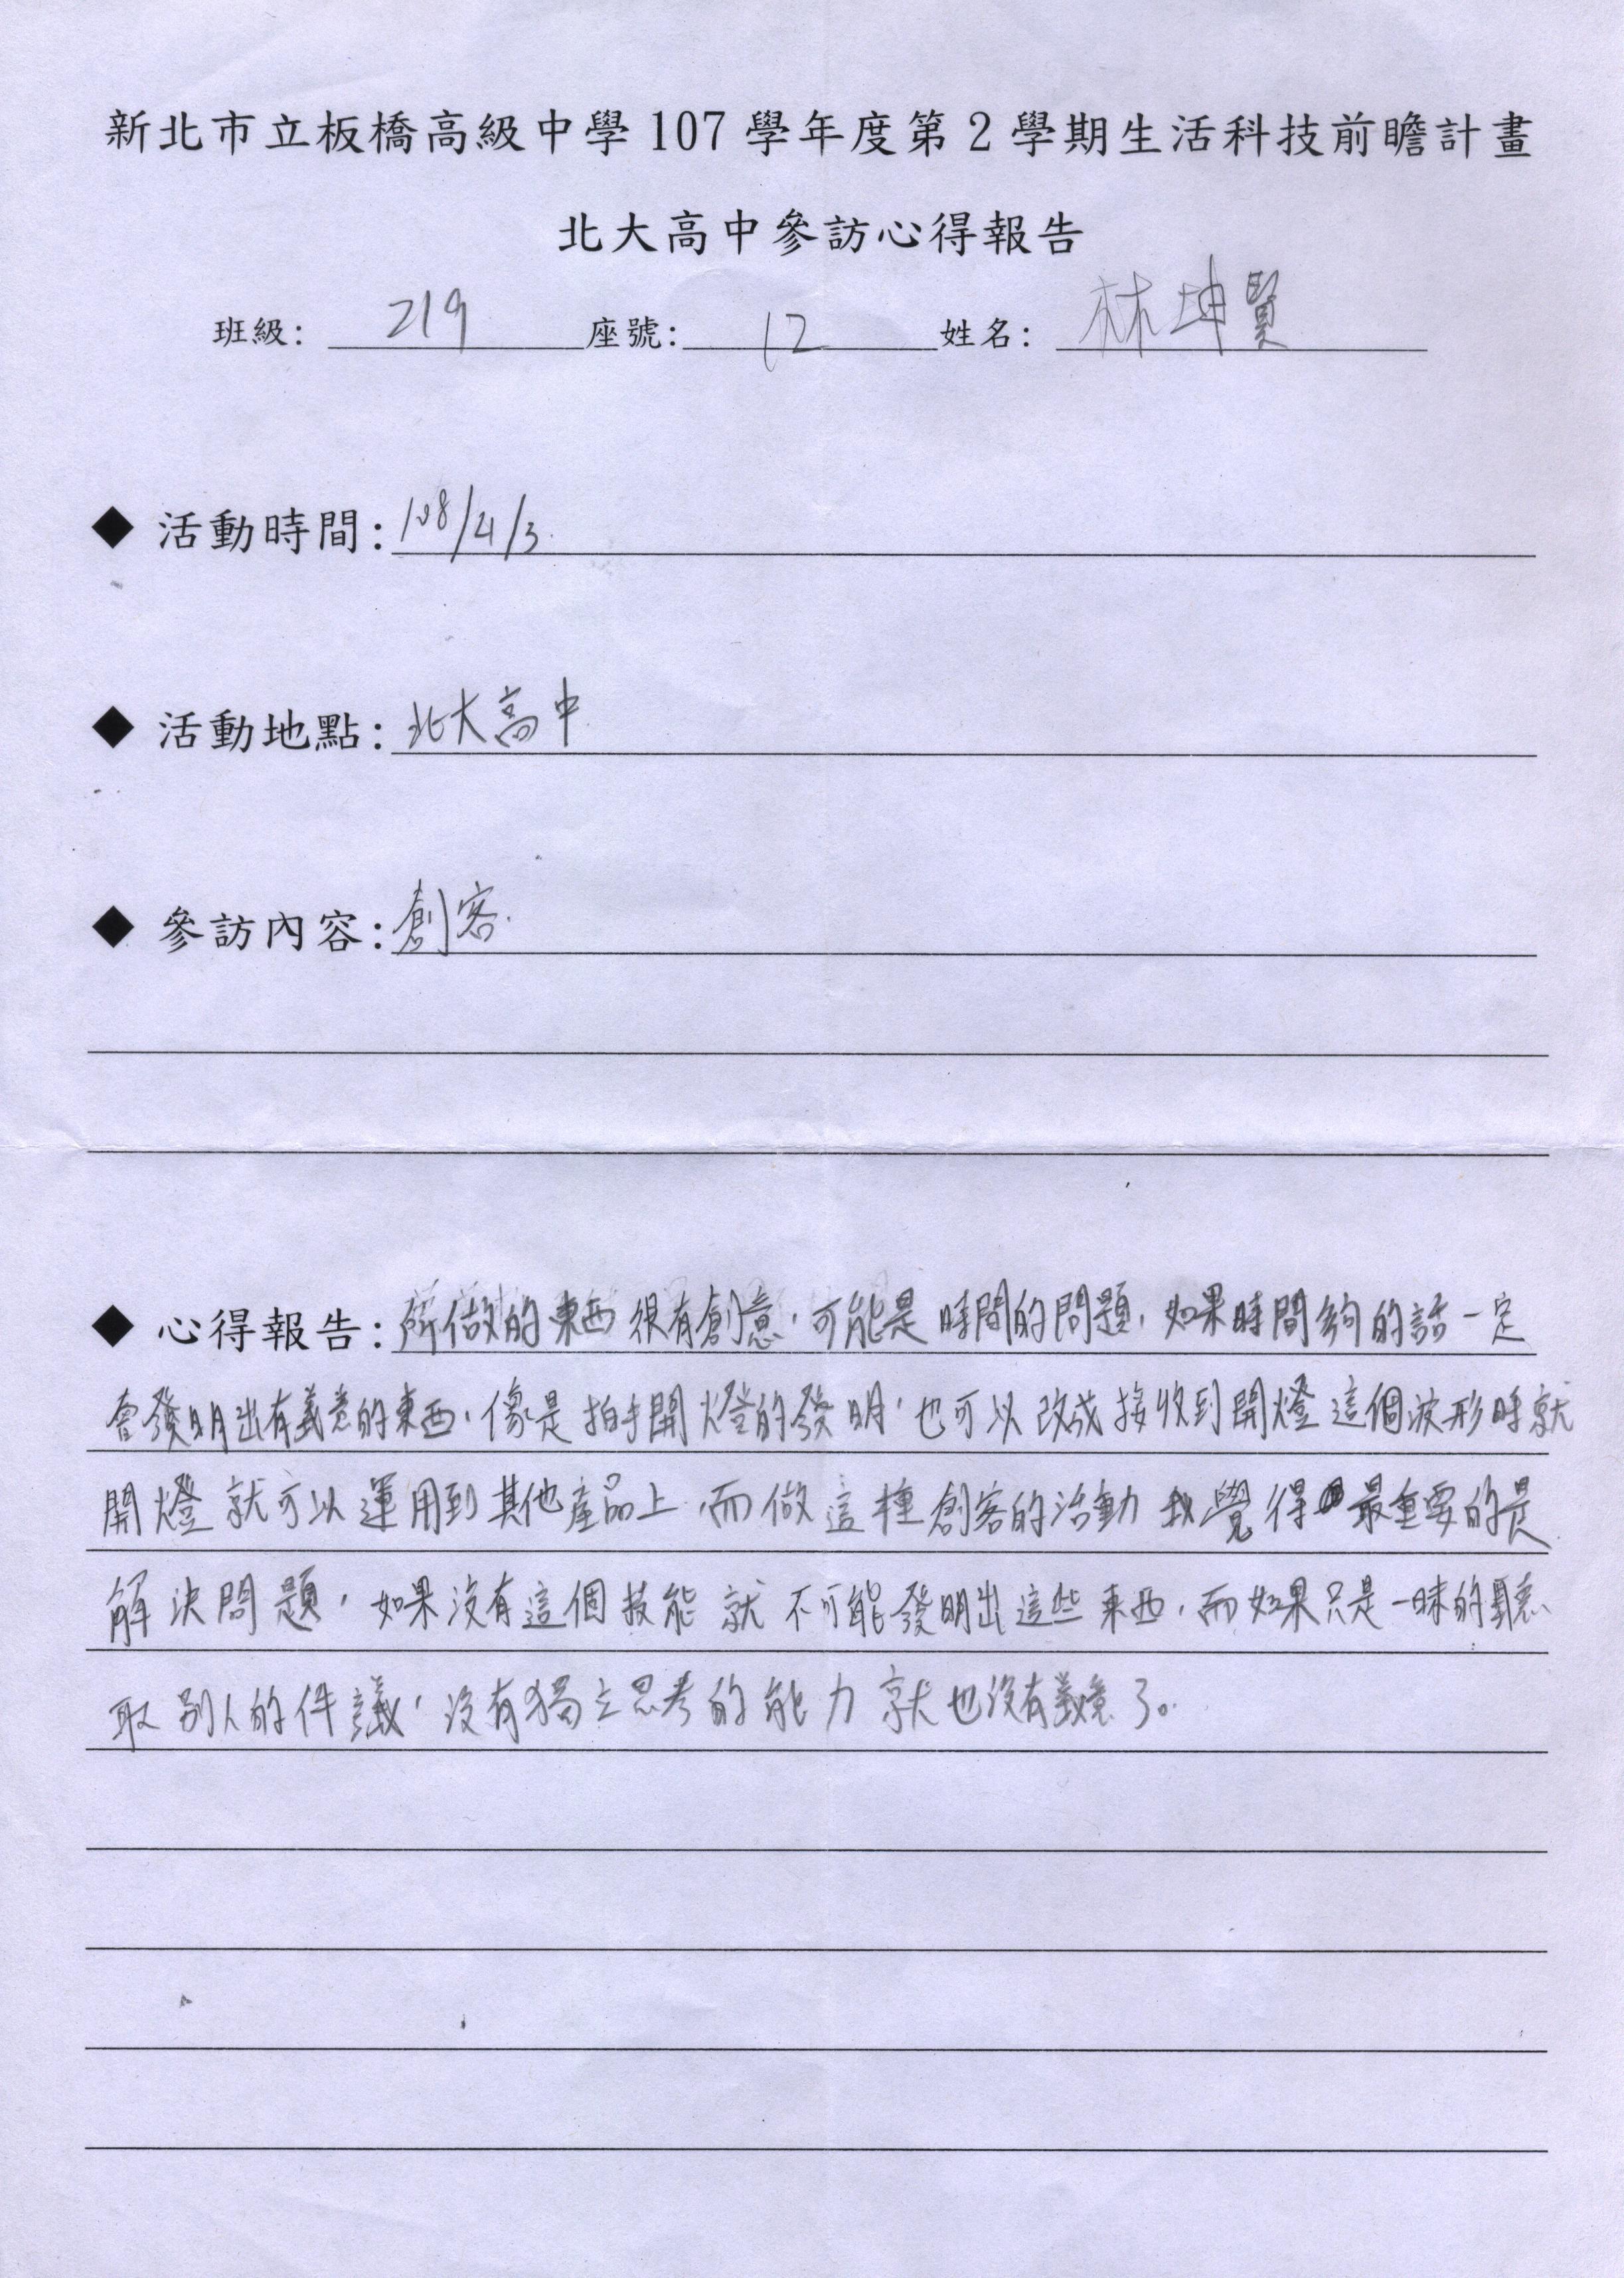 新北市立板橋高級中學 107 學年度第 2 學期生活科技前瞻計畫
北大高中參訪心得報告
班級: 219 座號: 12 姓名: 林坤賢
◆ 活動時間: 108/4/3.
◆ 活動地點: 北大高中
◆ 參訪內容: 創客.
◆ 心得報告: 所做的東西很有創意,可能是時間的問題,如果時間夠的話一定
會發明出有義意的東西,像是拍手開燈的發明,也可以改成接收到開燈這個波形時就
開燈就可以運用到其他產品上,而做這種創客的活動我覺得最重要的是
解決問題,如果沒有這個技能就不可能發明出這些東西,而如果只是一昧的聽
取別人的件議,沒有獨立思考的能力就也沒有義意了。